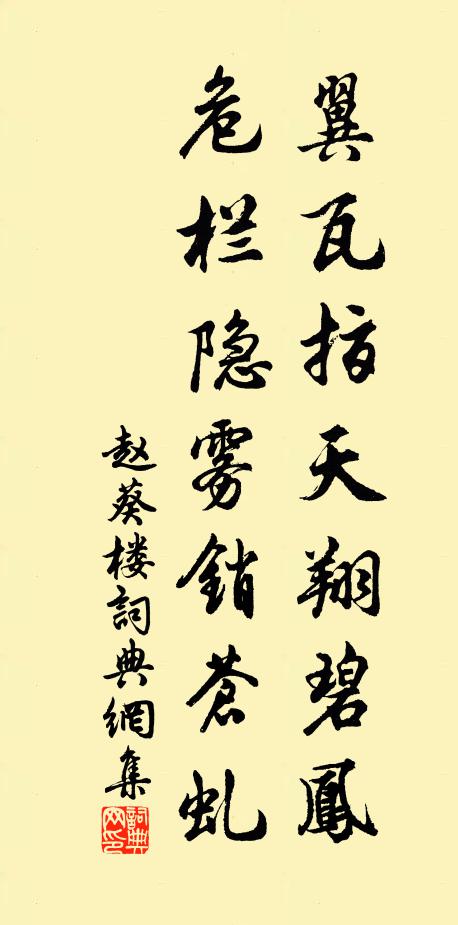 翼瓦指天翔碧鳳
危栏隐雾銷蒼虬
赵葵楼詞典網集
詞典網印